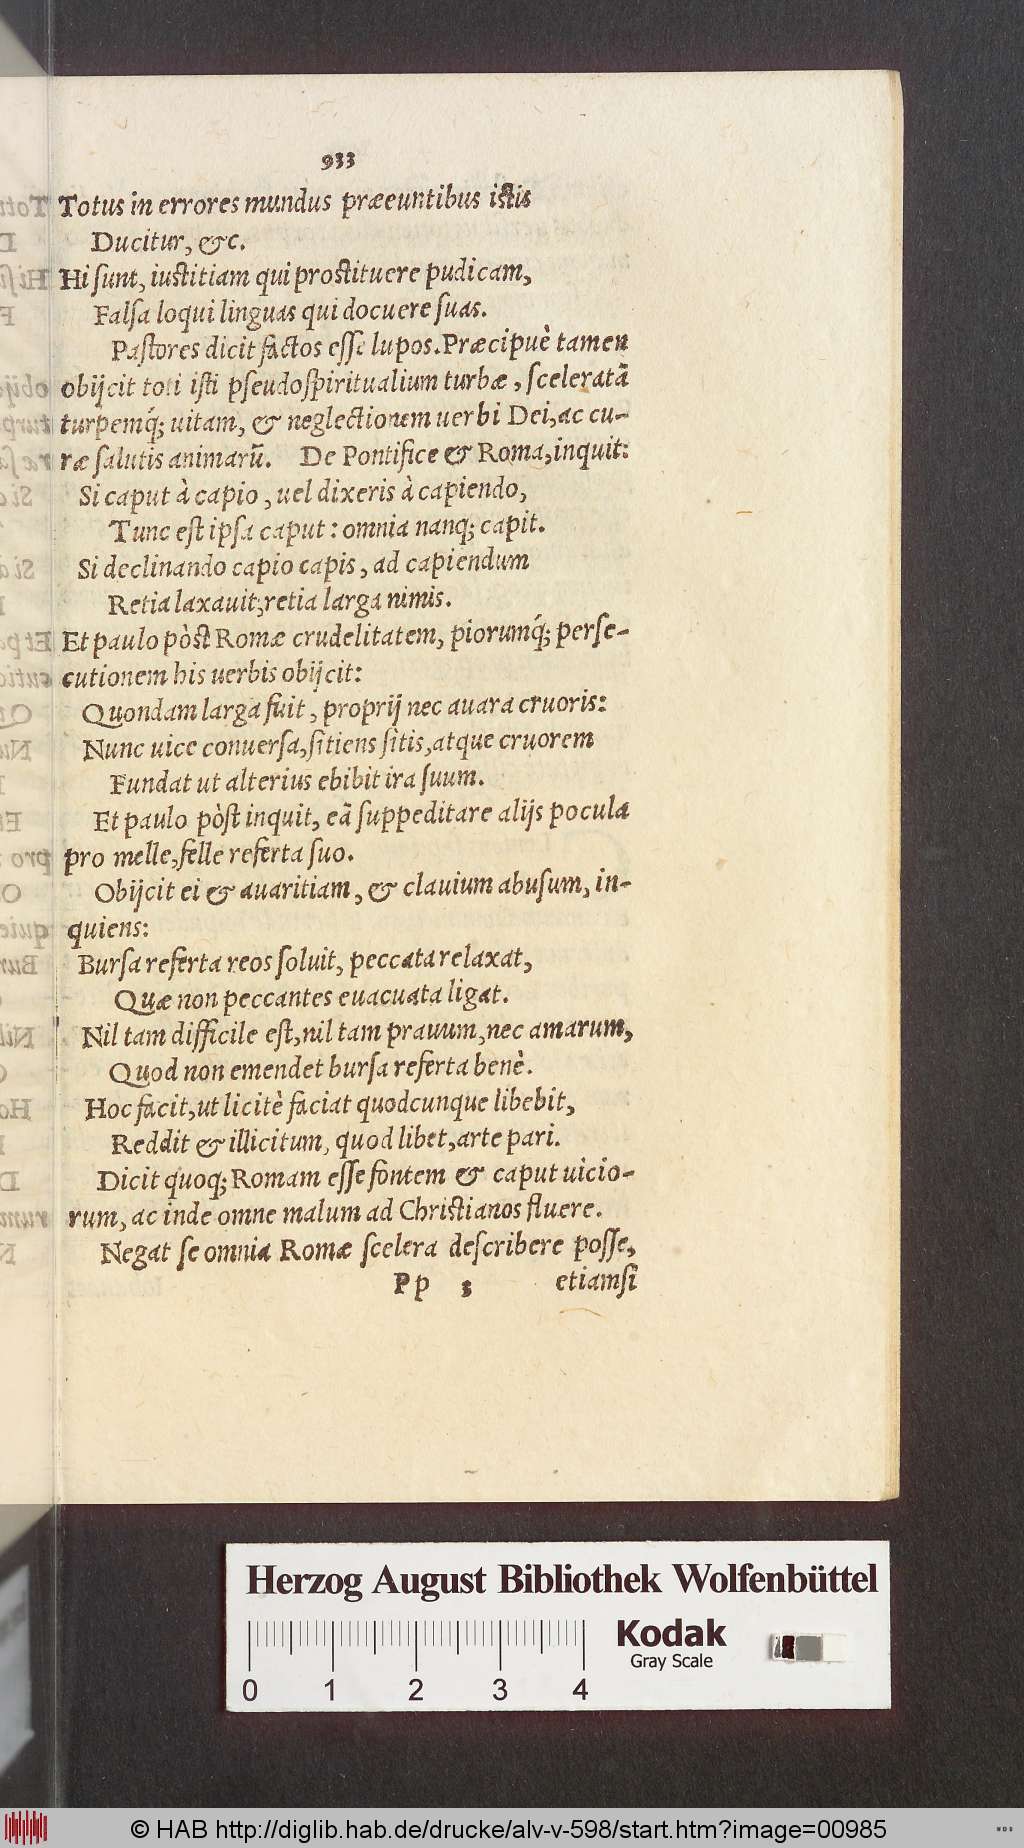 933
Totus in errores mundus præeuntibus istis
Ducitur, &c.
Hi sunt, iustitiam qui prostituere pudicam,
Falsa loqui linguas qui docuere suas.
Pastores dicit factos esse lupos. Præcipuè tamen
obijcit toti isti pseudospiritualium turbæ, sceleratā
turpemq́; uitam, & neglectionem uerbi Dei, ac cu-
ræ salutis animarū. De Pontifice & Roma, inquit:
Si caput à capio, uel dixeris à capiendo,
Tunc est ipsa caput: omnia nanq; capit.
Si declinando capio capis, ad capiendum
Retia laxauit, retia larga nimis.
Et paulo pòst Romæ crudelitatem, piorumq́; perse-
cutionem his uerbis obijcit:
Quondam larga fuit, proprij nec auara cruoris:
Nunc uice conuersa, sitiens sitis, atque cruorem
Fundat ut alterius ebibit ira suum.
Et paulo pòst inquit, eā suppeditare alijs pocula
pro melle, felle referta suo.
Obijcit ei & auaritiam, & clauium abusum, in-
quiens:
Bursa referta reos soluit, peccata relaxat,
Quæ non peccantes euacuata ligat.
Nil tam difficile est, nil tam prauum, nec amarum,
Quod non emendet bursa referta benè.
Hoc facit, ut licitè faciat quodcunque libebit,
Reddit & illicitum, quod libet, arte pari.
Dicit quoq; Romam esse fontem & caput uicio-
rum, ac inde omne malum ad Christianos fluere.
Negat se omnia Romæ scelera describere posse,
Pp 3 etiamsi
Herzog August Bibliothek Wolfenbüttel
Kodak
Gray Scale
0 1 2 3 4
© HAB http://diglib.hab.de/drucke/alv-v-598/start.htm?image=00985